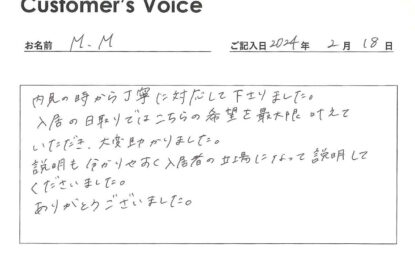 Customer's Voice
お名前 M.M ご記入日 2024 年 2 月 18 日
内見の時から丁寧に対応して下さりました。
入居の日取りではこちらの希望を最大限叶えて
いただき、大変助かりました。
説明も分かりやすく入居者の立場になって説明して
くださいました。
ありがとうございました。